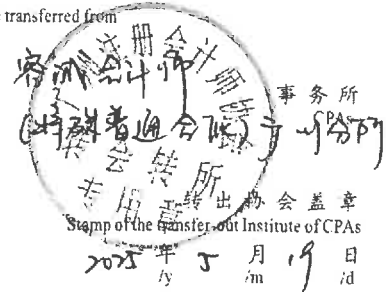 transferred from
容诚会计师
事务所
CPAs
(特殊普通合伙)
分所
转出协会盖章
Stamp of the transfer-out Institute of CPAs
2025 年 5 月 19 日
/y /m /d